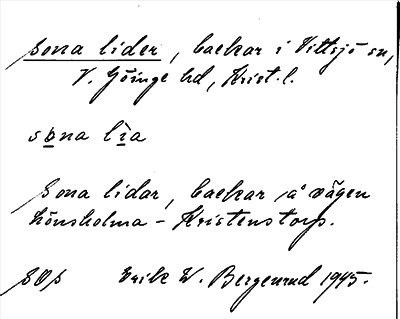 Sona lider, backar i Vittsjö sn,
V. Göinge hd, Krist. l.
sona lia
Sona lidar, backar å vägen
Hönsholma - Kristenstorp.
SOS Erik W. Bergenrud 1945.